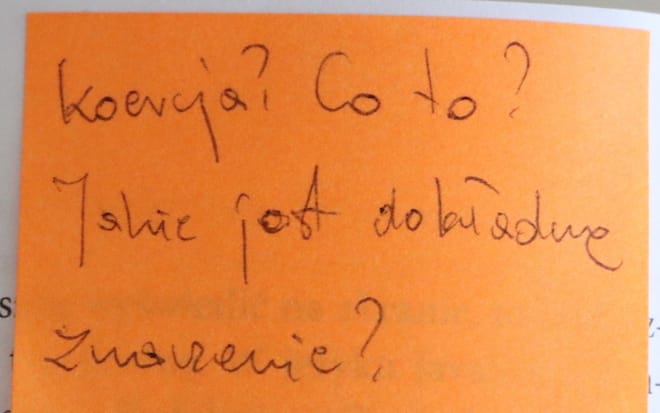 koercja? Co to?
Jakie jest dokładne
znaczenie?